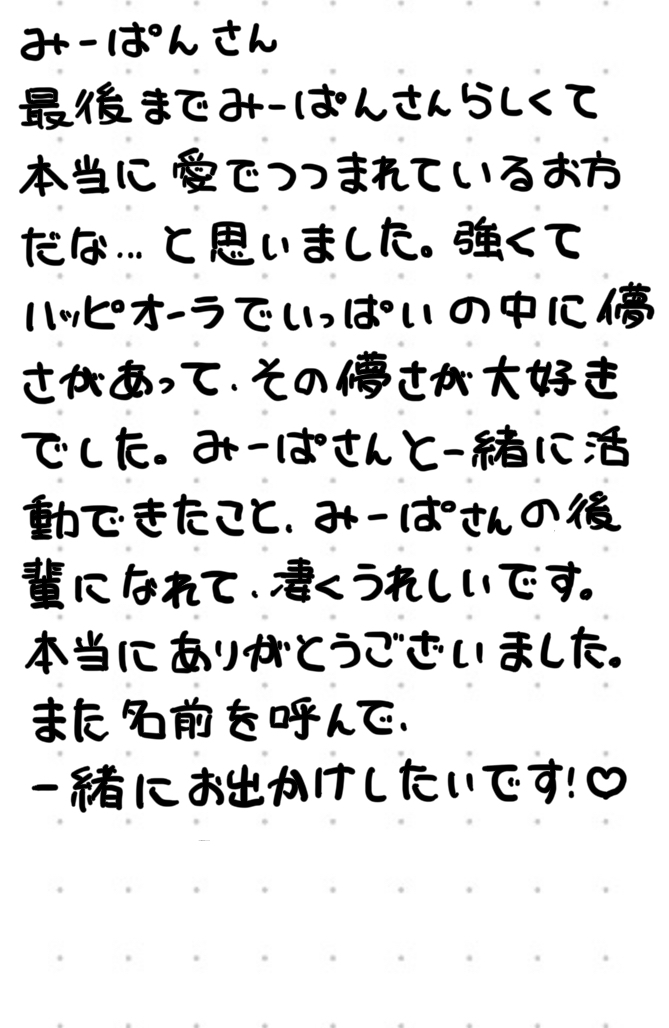 みーぱんさん
最後までみーぱんさんらしくて
本当に愛でつつまれているお方
だな…と思いました。強くて
ハッピオーラでいっぱいの中に儚
さがあって、その儚さが大好き
でした。みーぱさんと一緒に活
動できたこと、みーぱさんの後
輩になれて、凄くうれしいです。
本当にありがとうございました。
また名前を呼んで、
一緒にお出かけしたいです!♡